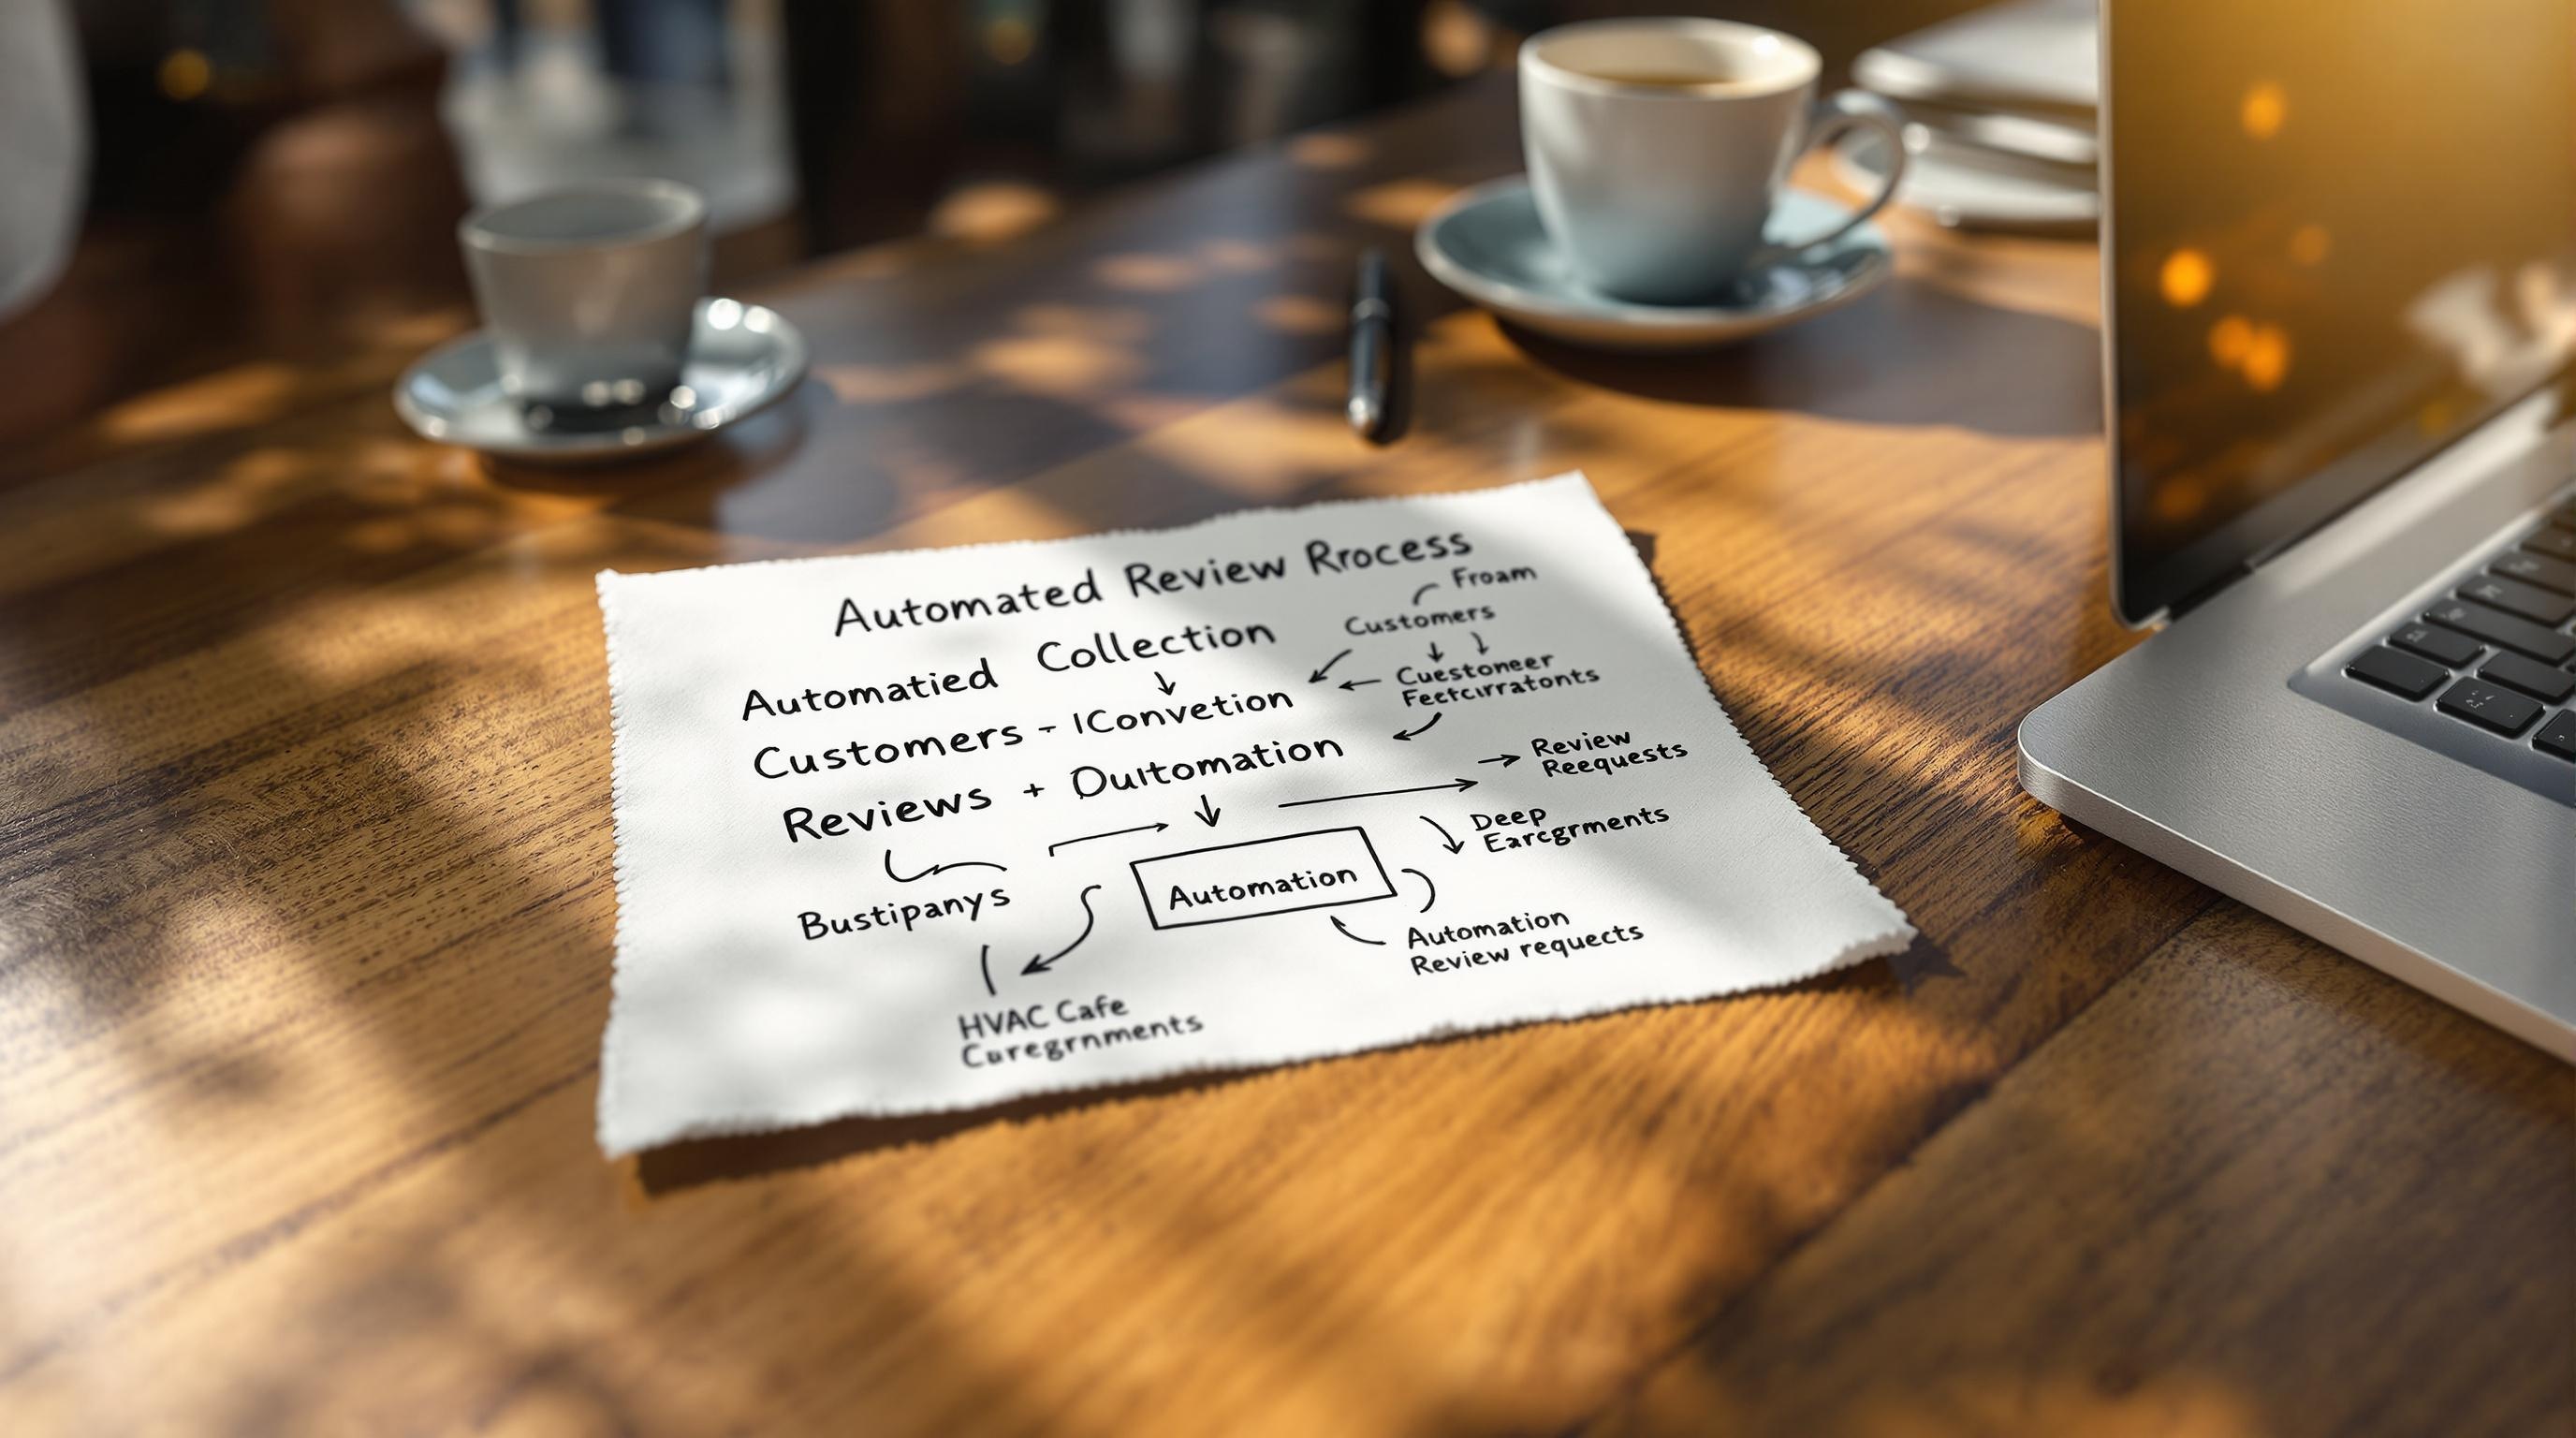 Automated Review Rrocess
Froam
Customers
Automatied Collection
Cuestoneer
Feetcirratonts
Customers - IConvetion
Reviews + Oultomation
Review
Reequests
Deep
Earcgrments
Bustipanys
Automation
Automation
Review requects
HVAC Cafe
Curegrnments